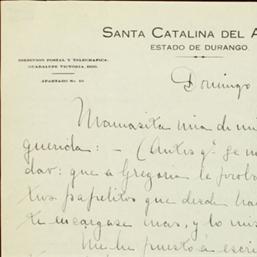 SANTA CATALINA DEL A
ESTADO DE DURANGO.
DIRECCION POSTAL Y TELEGRAFICA.
GUADALUPE VICTORIA, DGO.
APARTADO No. 10
Domingo
Mamasita mia de mi
querida: – (Antes q. se me
dar: que a Gregoria le
tros papelitos que desde
te encargase mas, y lo mis
Me he puesto a escri